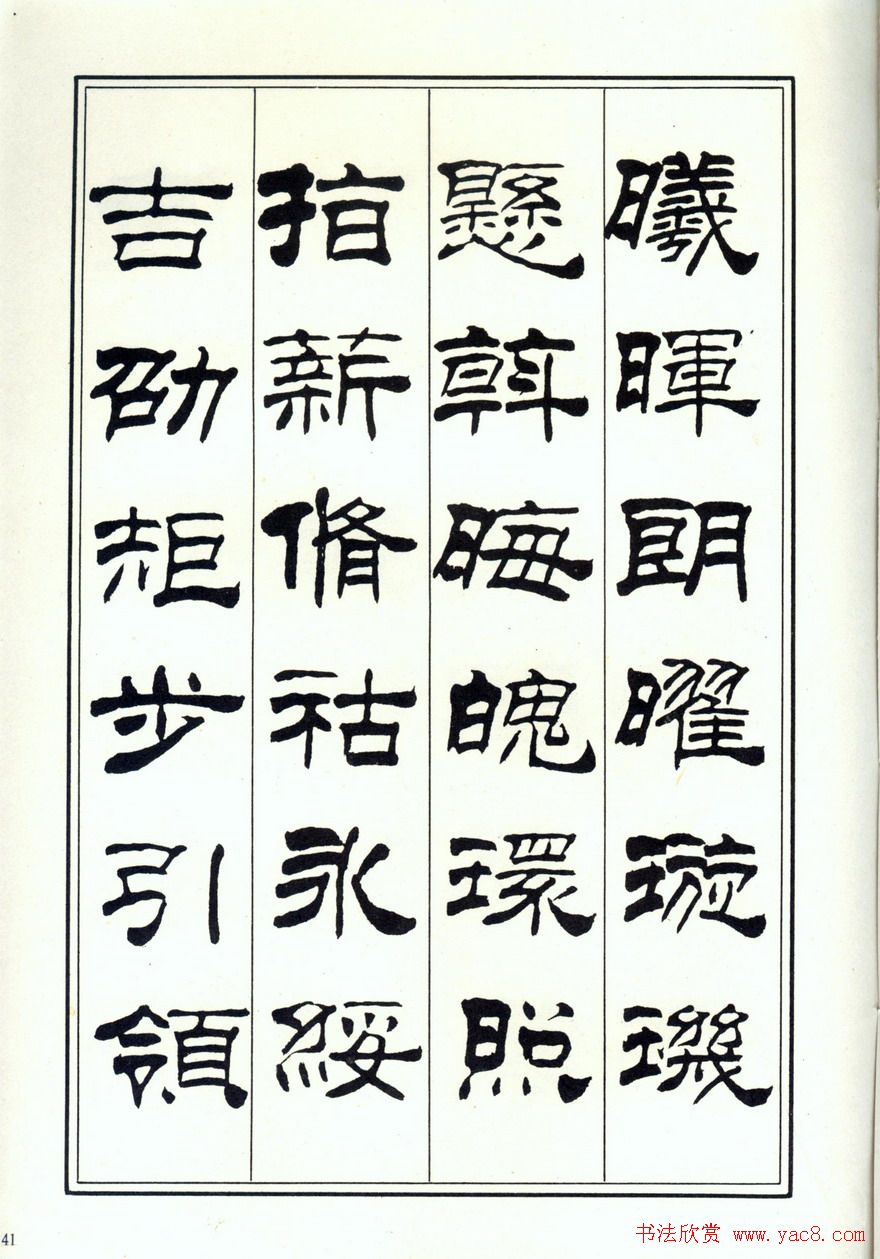 曦暉朗曜璇璣
懸斡晦魄環照
指薪脩祜永綏
吉劭矩步引領
41
书法欣赏 www.yac8.com